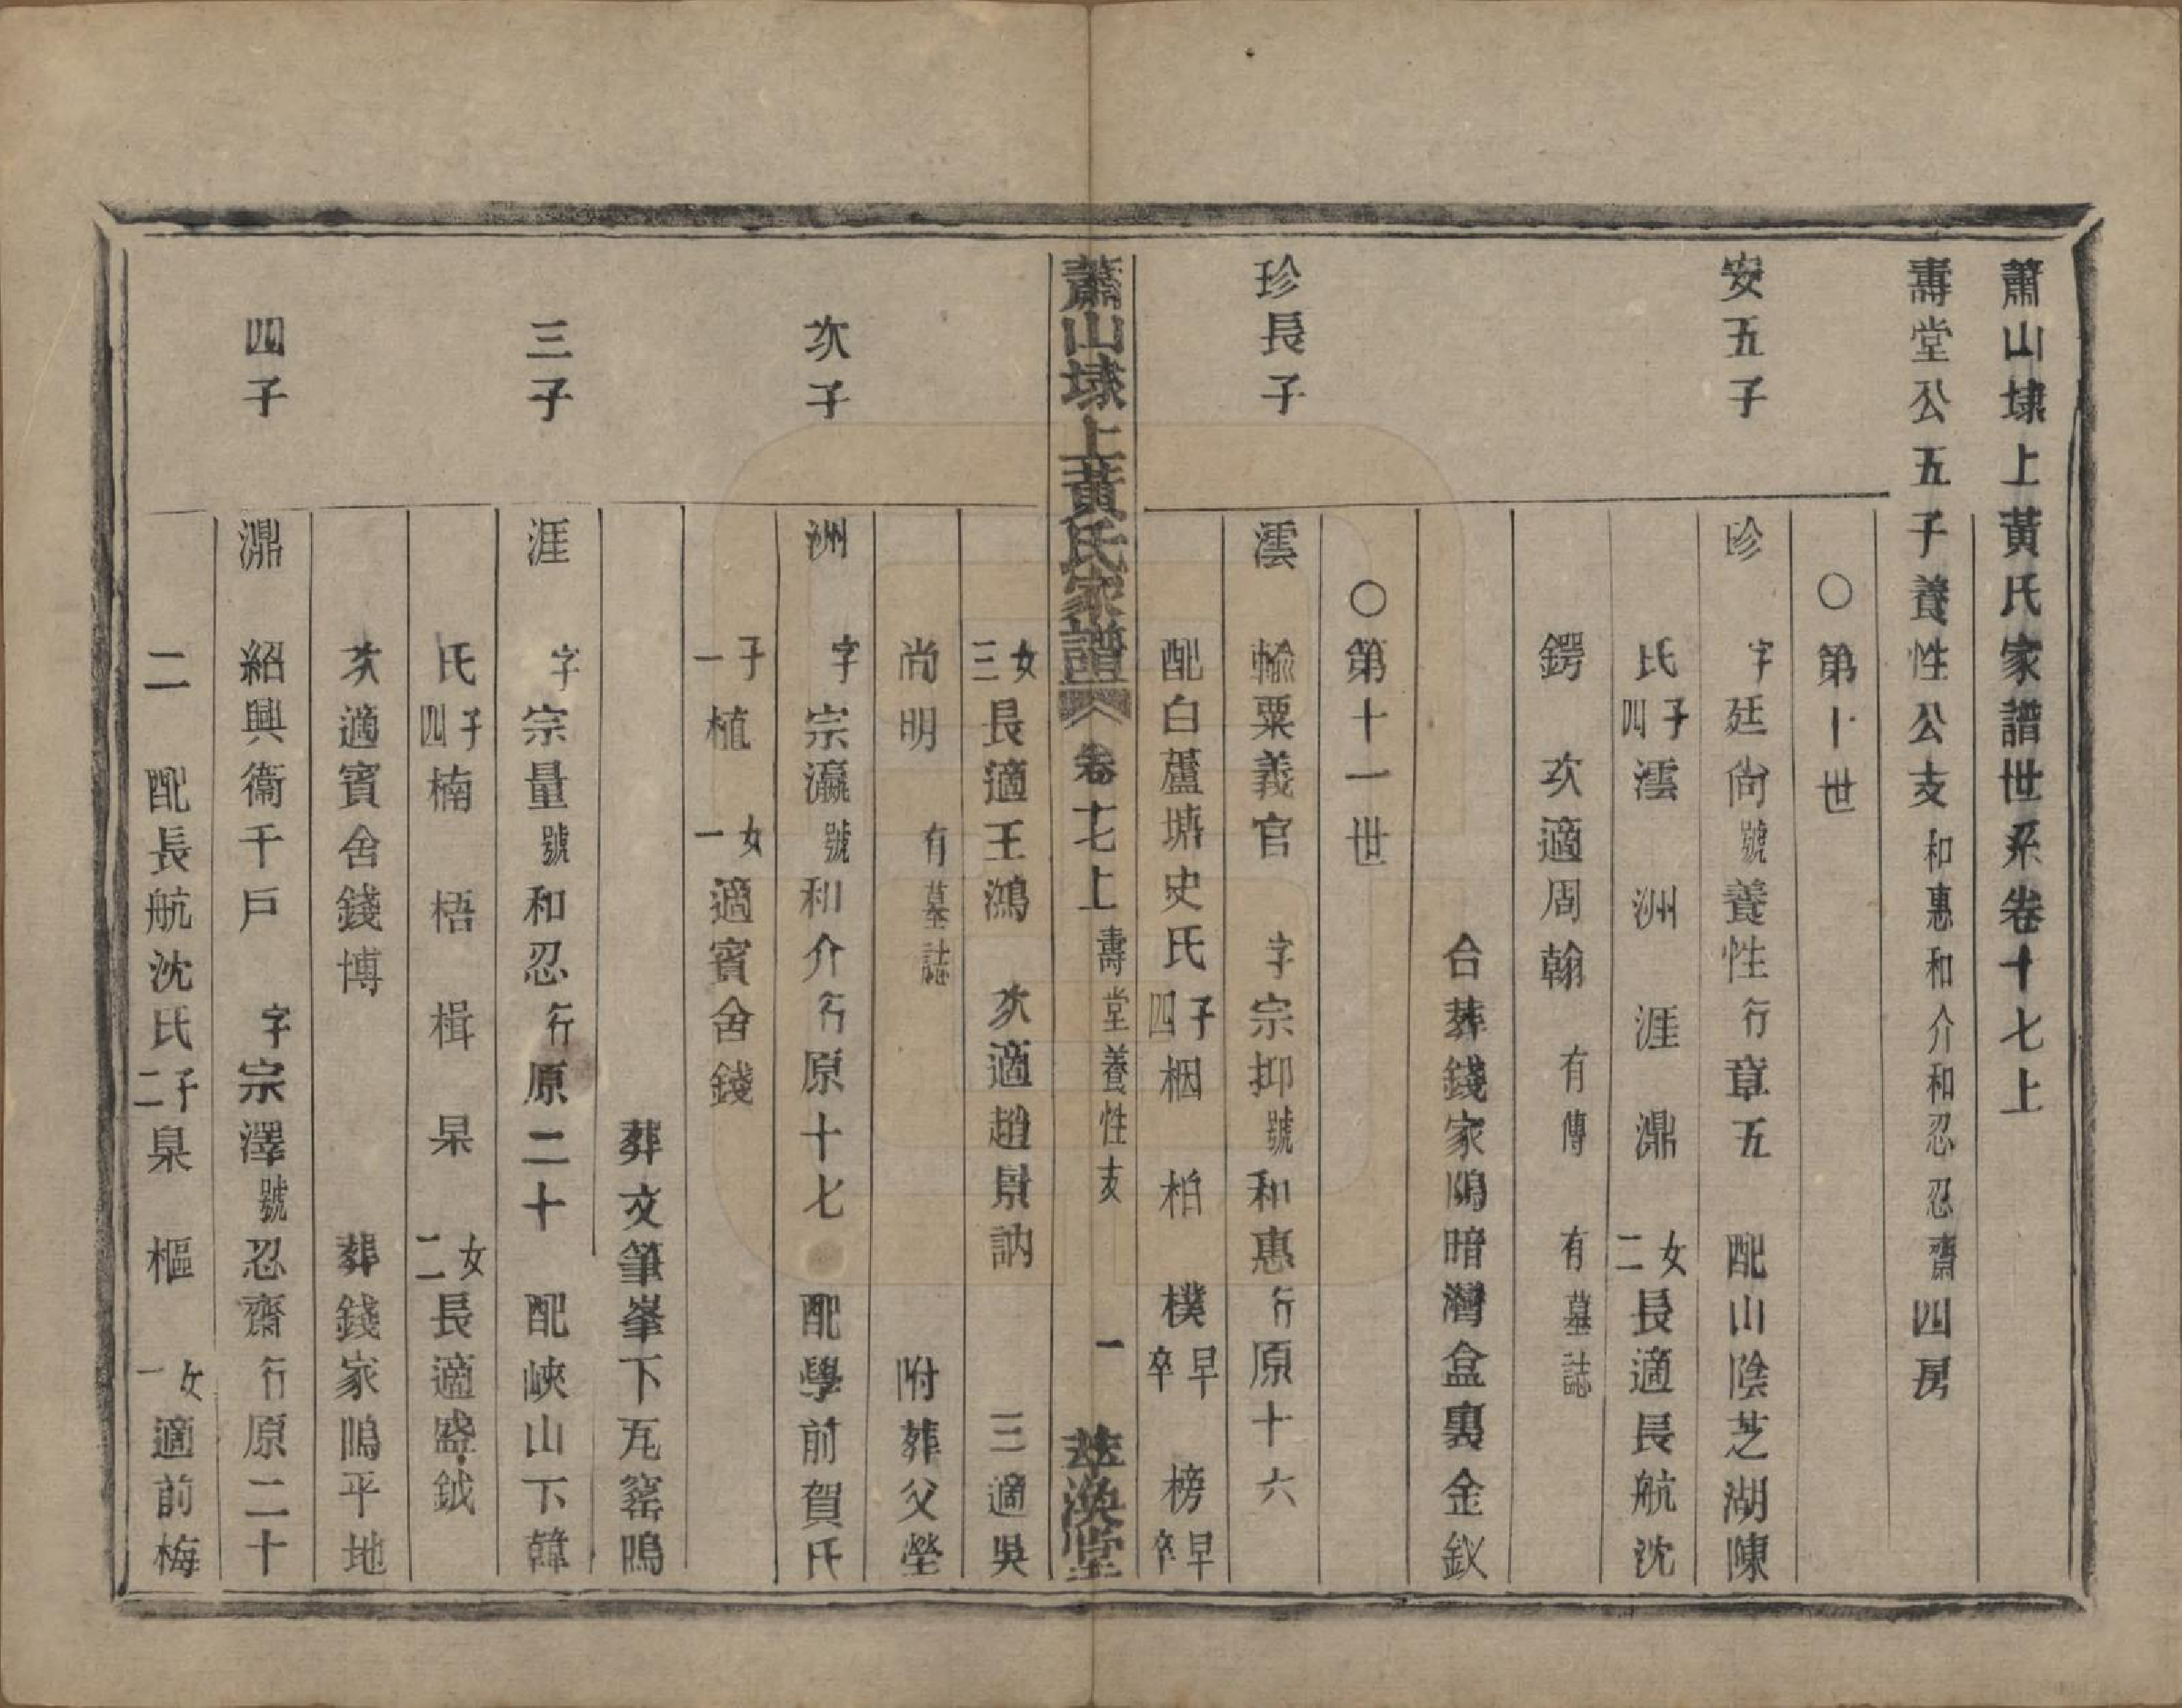 蕭山埭上黃氏家譜世系卷十七上
壽堂公五子養性公支和惠和介和忍忍齋四房
○第十世
安五子 珍 字廷尚號養性行章五 配山陰芝湖陳
氏四子澐 洲 涯 濎 二女長適長航沈
鍔 次適周翰 有傳 有墓誌
合葬錢家隖暗灣盒裏金釵
○第十一世
珍長子 澐 輸粟義官 字宗抑號和惠行原十六
配白蘆塘史氏四子桐 柏 樸早卒 榜早卒
蕭山埭上黃氏家譜 卷十七上 壽堂養性支 一 萃渙堂
三女長適王鴻 次適趙景訥 三適吳
尚明 有墓誌 附葬父塋
次子 洲 字宗瀛號和介行原十七 配學前賀氏
一子植 一女適賓舍錢
葬文筆峯下瓦窰隖
三子 涯 字宗量號和忍行原二十 配峽山下韓
氏四子楠 梧 楫 杲 二女長適盛鉞
次適賓舍錢博 葬錢家隖平地
四子 濎 紹興衞千戶 字宗澤號忍齋行原二十
二 配長航沈氏二子臬 樞 一女適前梅